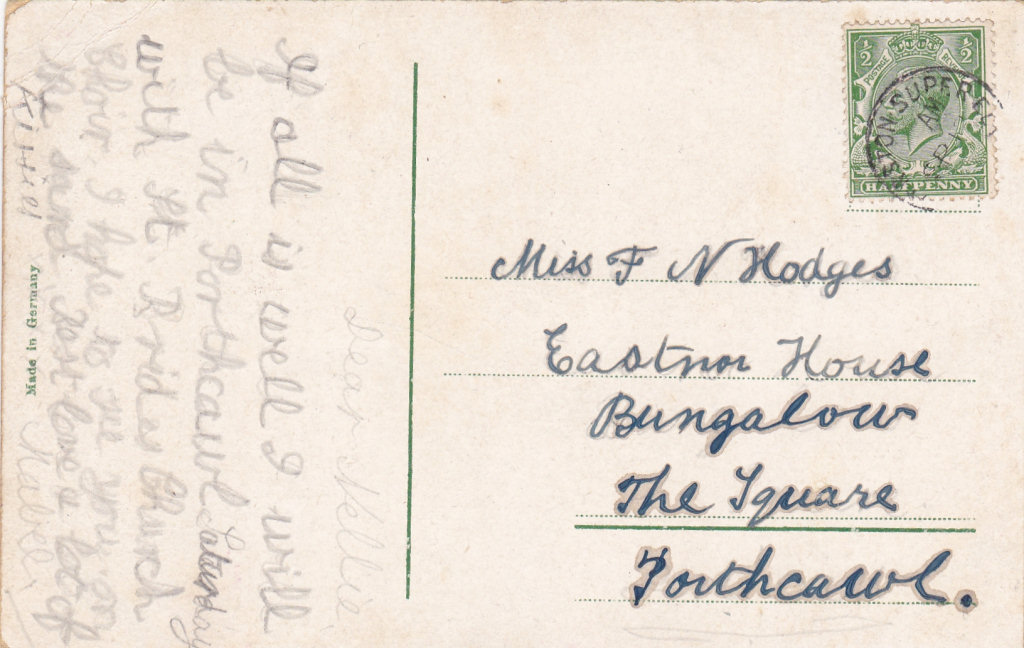 Dear Nellie
If all is well I will
be in Porthcawl Saturday
with St Brides Church
Choir I hope to see you on
the sand best love a lot of
Mabel
Made in Germany
½ ½
POSTAGE REVENUE
HALFPENNY
STON·SUPER·ELY
AM
SP 1
Miss F N Hodges
Eastnor House
Bungalow
The Square
Porthcawl.